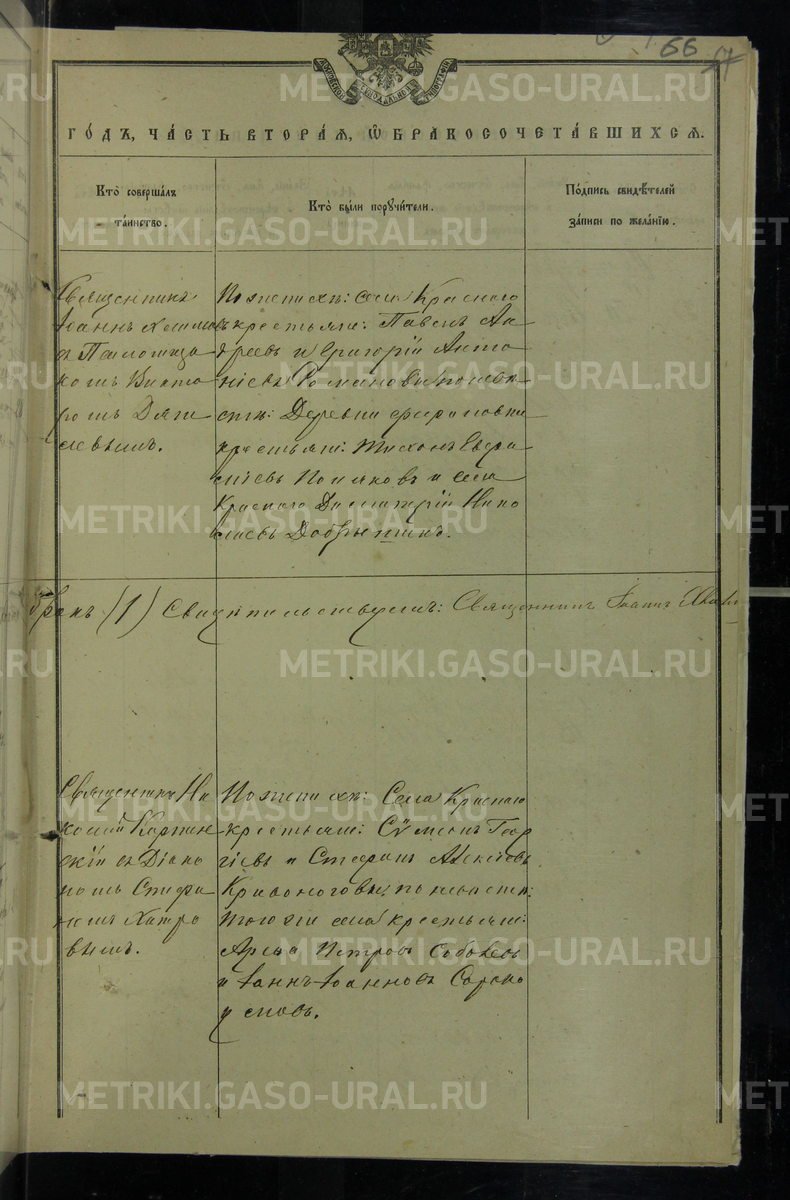 66
МОСКОВСКОЙ СѴНОДАЛЬНОЙ ТИПОГРАФІИ
METRIKI.GASO-URAL.RU
ГО́ДЪ, ЧА́СТЬ ВТОРА́Я, Ѡ БРАКОСОЧЕТА́ВШИХСЯ.
Кто̀ соверша́лъ
та́инство.
Кто̀ бы́ли поручи́тели.
По́дпись свидѣ́телей
за́писи по жела́нію.
Священникъ
Іоаннъ
съ Псаломщи
комъ Викто
ромъ Дяги
левымъ.
По женихѣ: села Краснаго
крестьяне: Павелъ Ан
дреевъ и Григорій Анто
ніевъ Романовы по невѣ
стѣ: Деревни
крестьян: Тихонъ
Поляковъ и села
Краснаго Димитрій Нико
лаевъ Добрынинъ.
бракъ (1) Свидѣтельствуемъ: Священникъ Іоаннъ
Священникъ Ни
колай Карпин
скій съ Діако
номъ Стефа
номъ Хитро
вымъ.
По женихѣ: Села Краснаго
крестьяне: Сѵмеонъ Геор
гіевъ и Стефанъ Алексѣевъ
Кривоноговы, по невѣстѣ:
тогоже села крестьяне:
Петровъ Соболевъ
и Іоаннъ Іоанновъ Сороко
умовъ.